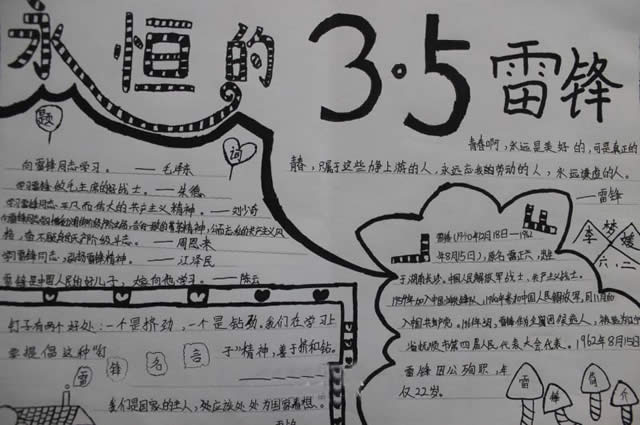 永恒的 3·5 雷锋
题词
向雷锋同志学习。 ——毛泽东
学习雷锋 做毛主席的好战士。 ——朱德
学习雷锋同志平凡而伟大的共产主义精神。 ——刘少奇
——周恩来
学习雷锋同志，弘扬雷锋精神。 ——江泽民
雷锋是中国人民的好儿子，大家向他学习。 ——陈云
青春啊，永远是美好的，可是真正的
青春，只属于这些力争上游的人，永远忘我的劳动的人，永远谦虚的人。
——雷锋
李梦媛
六.二
雷锋(1940年12月18日—1962
年8月15日)，原名雷正兴，出生
于湖南长沙。中国人民解放军战士，共产主义战士。
1960年参加中国人民解放军，同年11月
入中国共产党。
省抚顺市第四届人民代表大会代表。1962年8月15日
雷锋因公殉职，年
仅22岁。
雷锋简介
钉子有两个好处：一个是挤劲，一个是钻劲。我们在学习上
要提倡这种"钉
子"精神，善于挤和钻。
雷锋名言
我们是国家的主人，处应该处处为国家着想。